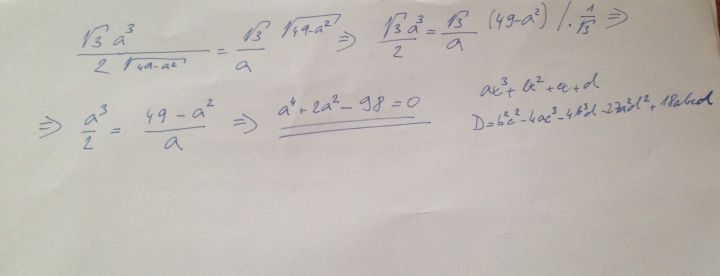 √3 a³ / 2√(49-a²) = √3/a √(49-a²) ⇒ √3 a³/2 = √3/a (49-a²) / · 1/√3 ⇒
⇒ a³/2 = (49-a²)/a ⇒ a⁴+2a²-98=0
ax³+bx²+cx+d
D=b²c²-4ac³-4b³d-27a²d²+18abcd